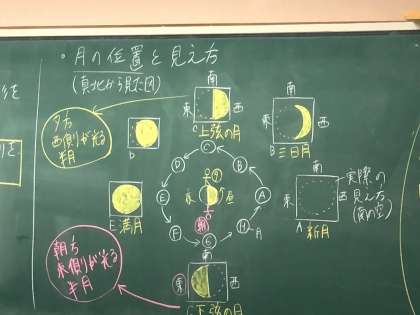 ・月の位置と見え方
(真北から見た図)
夕方
西側が光る
半月
南
東
西
C 上弦の月
南
東
西
B 三日月
D
C
D
B
E
A
F
H
G
月
夕
夜
昼
朝
E 満月
南
東
西
A 新月
実際の
見え方
(南の空)
朝方
東側が光る
半月
南
東
西
下弦の月